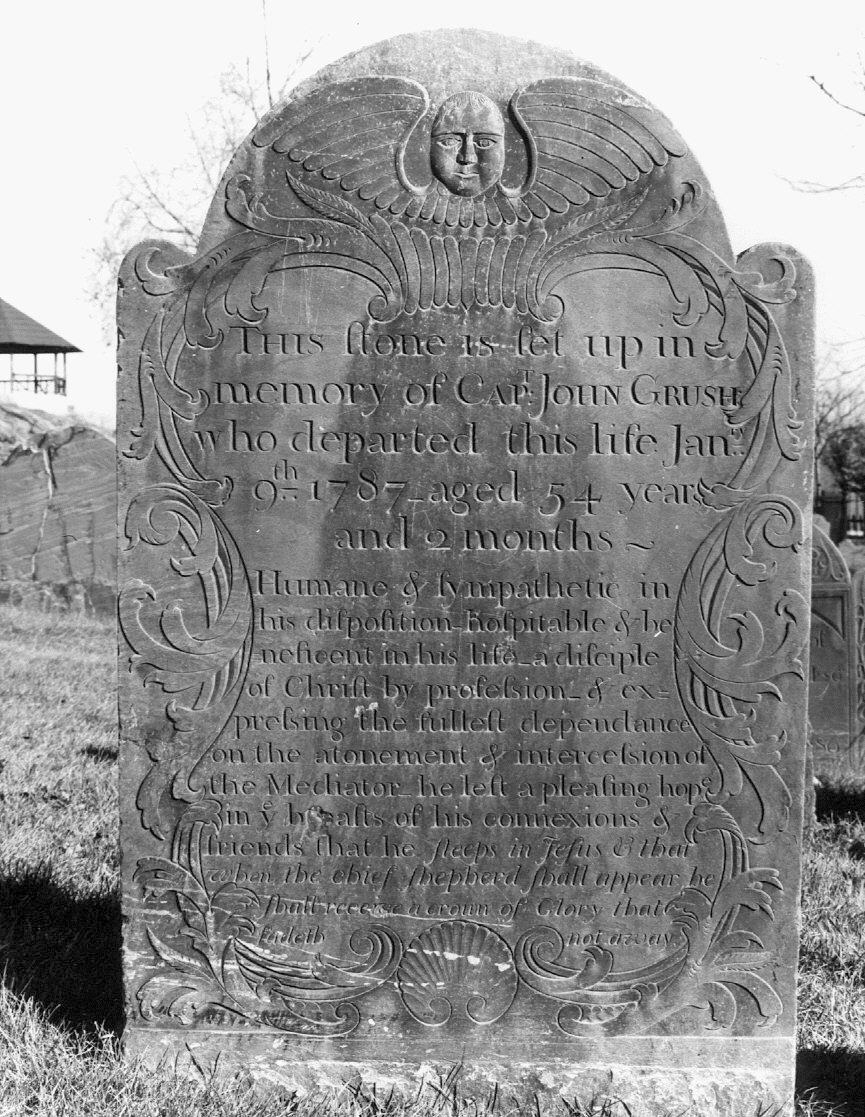 THIS ſtone is ſet up in
memory of CAPᵀ. JOHN GRUSH
who departed this life Janʸ.
9ᵗʰ 1787 aged 54 years
and 2 months ~
Humane & ſympathetic in
his diſpoſition hoſpitable & be
neficent in his life a diſciple
of Chriſt by profeſsion & ex=
preſsing the fulleſt dependance
on the atonement & interceſsion of
the Mediator he left a pleaſing hope
in yᵉ breaſts of his connexions &
friends that he ſleeps in Jeſus & that
when the chief ſhepherd ſhall appear he
ſhall receive a crown of Glory that
fadeth not away.